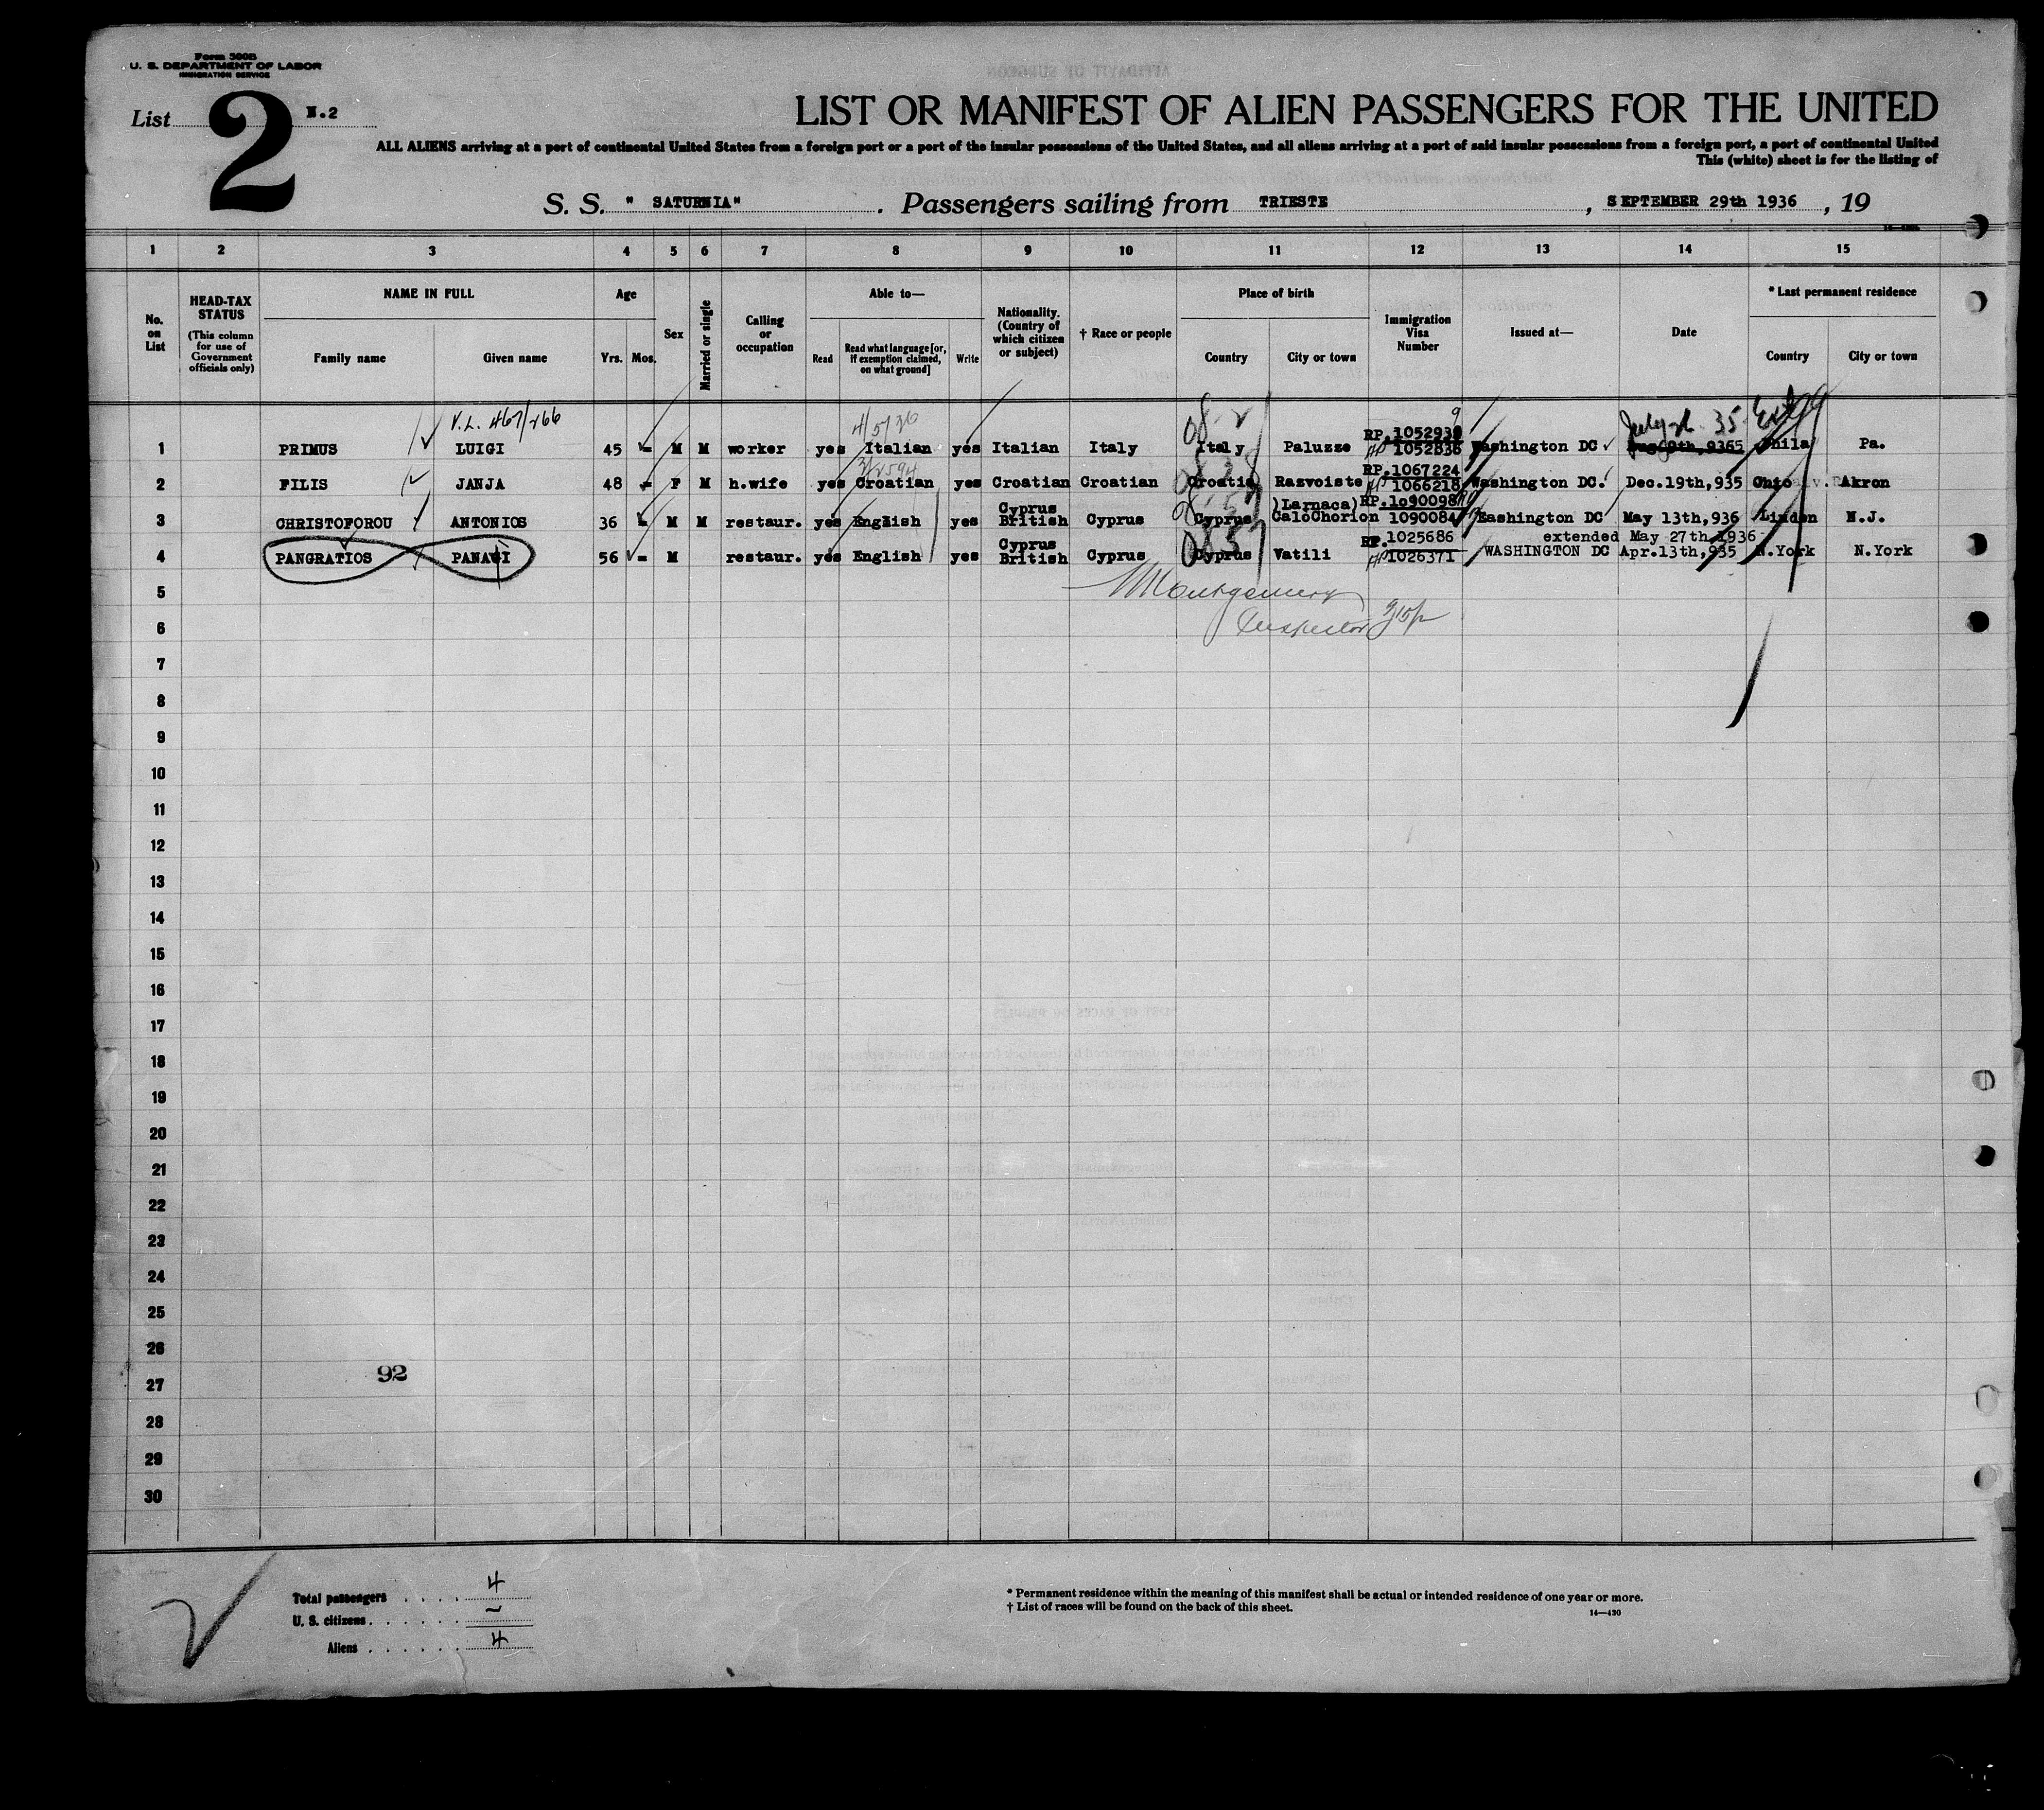 Form 500B
U. S. DEPARTMENT OF LABOR
IMMIGRATION SERVICE
List 2 N.2
LIST OR MANIFEST OF ALIEN PASSENGERS FOR THE UNITED
ALL ALIENS arriving at a port of continental United States from a foreign port or a port of the insular possessions of the United States, and all aliens arriving at a port of said insular possessions from a foreign port, a port of continental United
This (white) sheet is for the listing of
S. S. " SATURNIA" . Passengers sailing from TRIESTE , SEPTEMBER 29th 1936 , 19
1 2 3 4 5 6 7 8 9 10 11 12 13 14 15
No. on List
HEAD-TAX STATUS
(This column for use of Government officials only)
NAME IN FULL
Family name Given name
Age
Yrs. Mos.
Sex
Married or single
Calling or occupation
Able to—
Read
Read what language [or, if exemption claimed, on what ground]
Write
Nationality. (Country of which citizen or subject)
† Race or people
Place of birth
Country City or town
Immigration Visa Number
Issued at—
Date
* Last permanent residence
Country City or town
V.L. 467/166 4/5/36 9 July 35 Ext
RP.1052939
1 PRIMUS LUIGI 45 - M M worker yes Italian yes Italian Italy Italy Paluzze 1052836 Washington DC Phila Pa.
RP.1067224
2 FILIS JANJA 48 - F M h.wife yes Croatian yes Croatian Croatian Croatia Razvoiste 1066218 Washington DC. Dec.19th,935 Ohio Akron
Cyprus )Larnaca) RP.1090098
3 CHRISTOFOROU ANTONIOS 36 - M M restaur. yes English yes British Cyprus Cyprus CaloChorion 1090084 Washington DC May 13th,936 Linden N.J.
Cyprus RP.1025686 extended May 27th,1936
4 PANGRATIOS PANAGI 56 - M restaur. yes English yes British Cyprus Cyprus Vatili 1026371 WASHINGTON DC Apr.13th,935 N.York N.York
Montgomery
5
Inspector
6
7
8
9
10
11
12
13
14
15
16
17
18
19
20
21
22
23
24
25
26
92
27
28
29
30
Total passengers . . . . 4
U. S. citizens . . . . . –
Aliens . . . . . . 4
* Permanent residence within the meaning of this manifest shall be actual or intended residence of one year or more.
† List of races will be found on the back of this sheet.
14—430